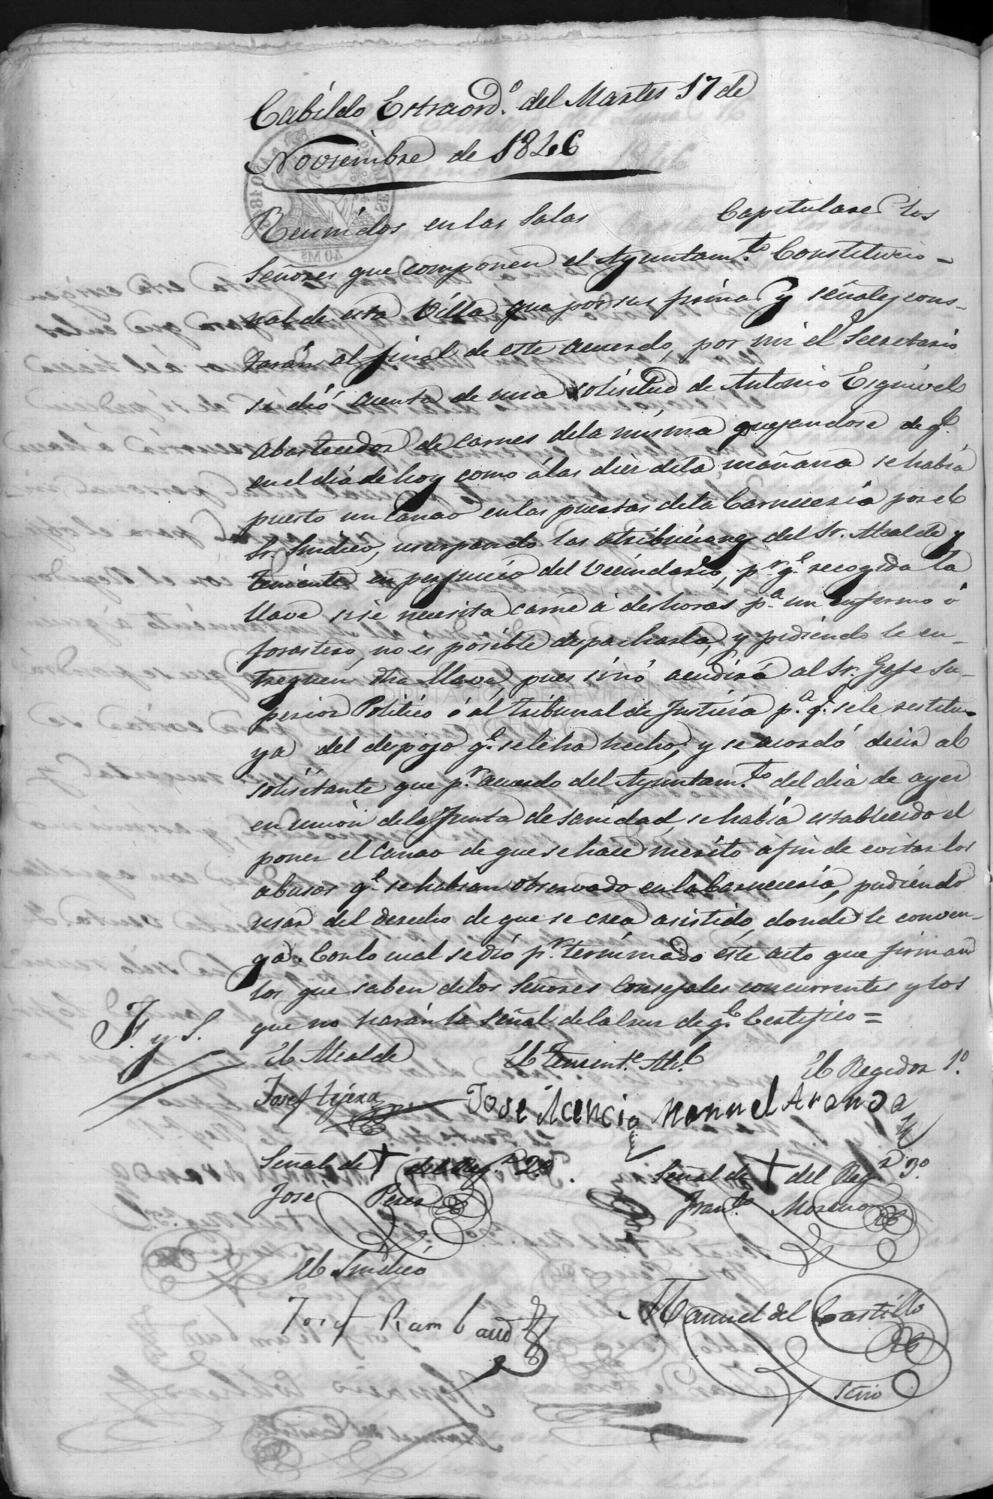 Cabildo Extraord.º del Martes 17 de
Noviembre de 1846
Reunidos en las Salas Capitulares los
Señores que componen el Ayuntam.to Constitucio-
nal de esta Villa que por sus firmas y señales cons-
tarán al final de este acuerdo, por mi el Secretario
se dió cuenta de una solisitud de Antonio Esquivel
abastecedor de carnes de la misma quejandose de q.e
en el día de hoy como á las diez de la mañana se había
puesto un Canao en las puertas de la Carnecería por el
Sr. Sindico, usurpando las atribuciones del Sr. Alcalde y
Teniente en perjuicio del Vecindario, p.r q.e recogida la
llave si se necesita carne á deshoras p.a un enfermo ó
forastero, no es posible despacharla, y pidiendo le en-
treguen dha llave, pues sinó acudirá al Sr. Gefe Su-
perior Politico ó al tribunal de Justicia p.a q.e se le restitu-
ya del despojo q.e se le ha hecho; y se acordó decir al
solisitante que p.r acuerdo del Ayuntam.to del dia de ayer
en unión de la Junta de Sanidad, se había establecido el
poner el Canao de que se hace merito á fin de evitar los
abusos q.e se habian observado en la Carneceria, pudiendo
usar del derecho de que se crea asistido, donde le conven-
ga. Con lo cual se dió p.r terminado este acto que firman
los que saben de los Señores Consejales concurrentes y los
que no harán la señal de la cruz de q.e Certifico =
F. y S.
El Alcalde El Tenient.e Alc.e El Regidor 1.º
Josef Tijera José Acencio Manuel Aranda
Señal de + del Reg.r 2.º Señal de + del Reg.r 3.º
Jose Perez Fran.co Moreno
El Sindico
Josef Rambaud Manuel del Castillo
Srio
40 Ms